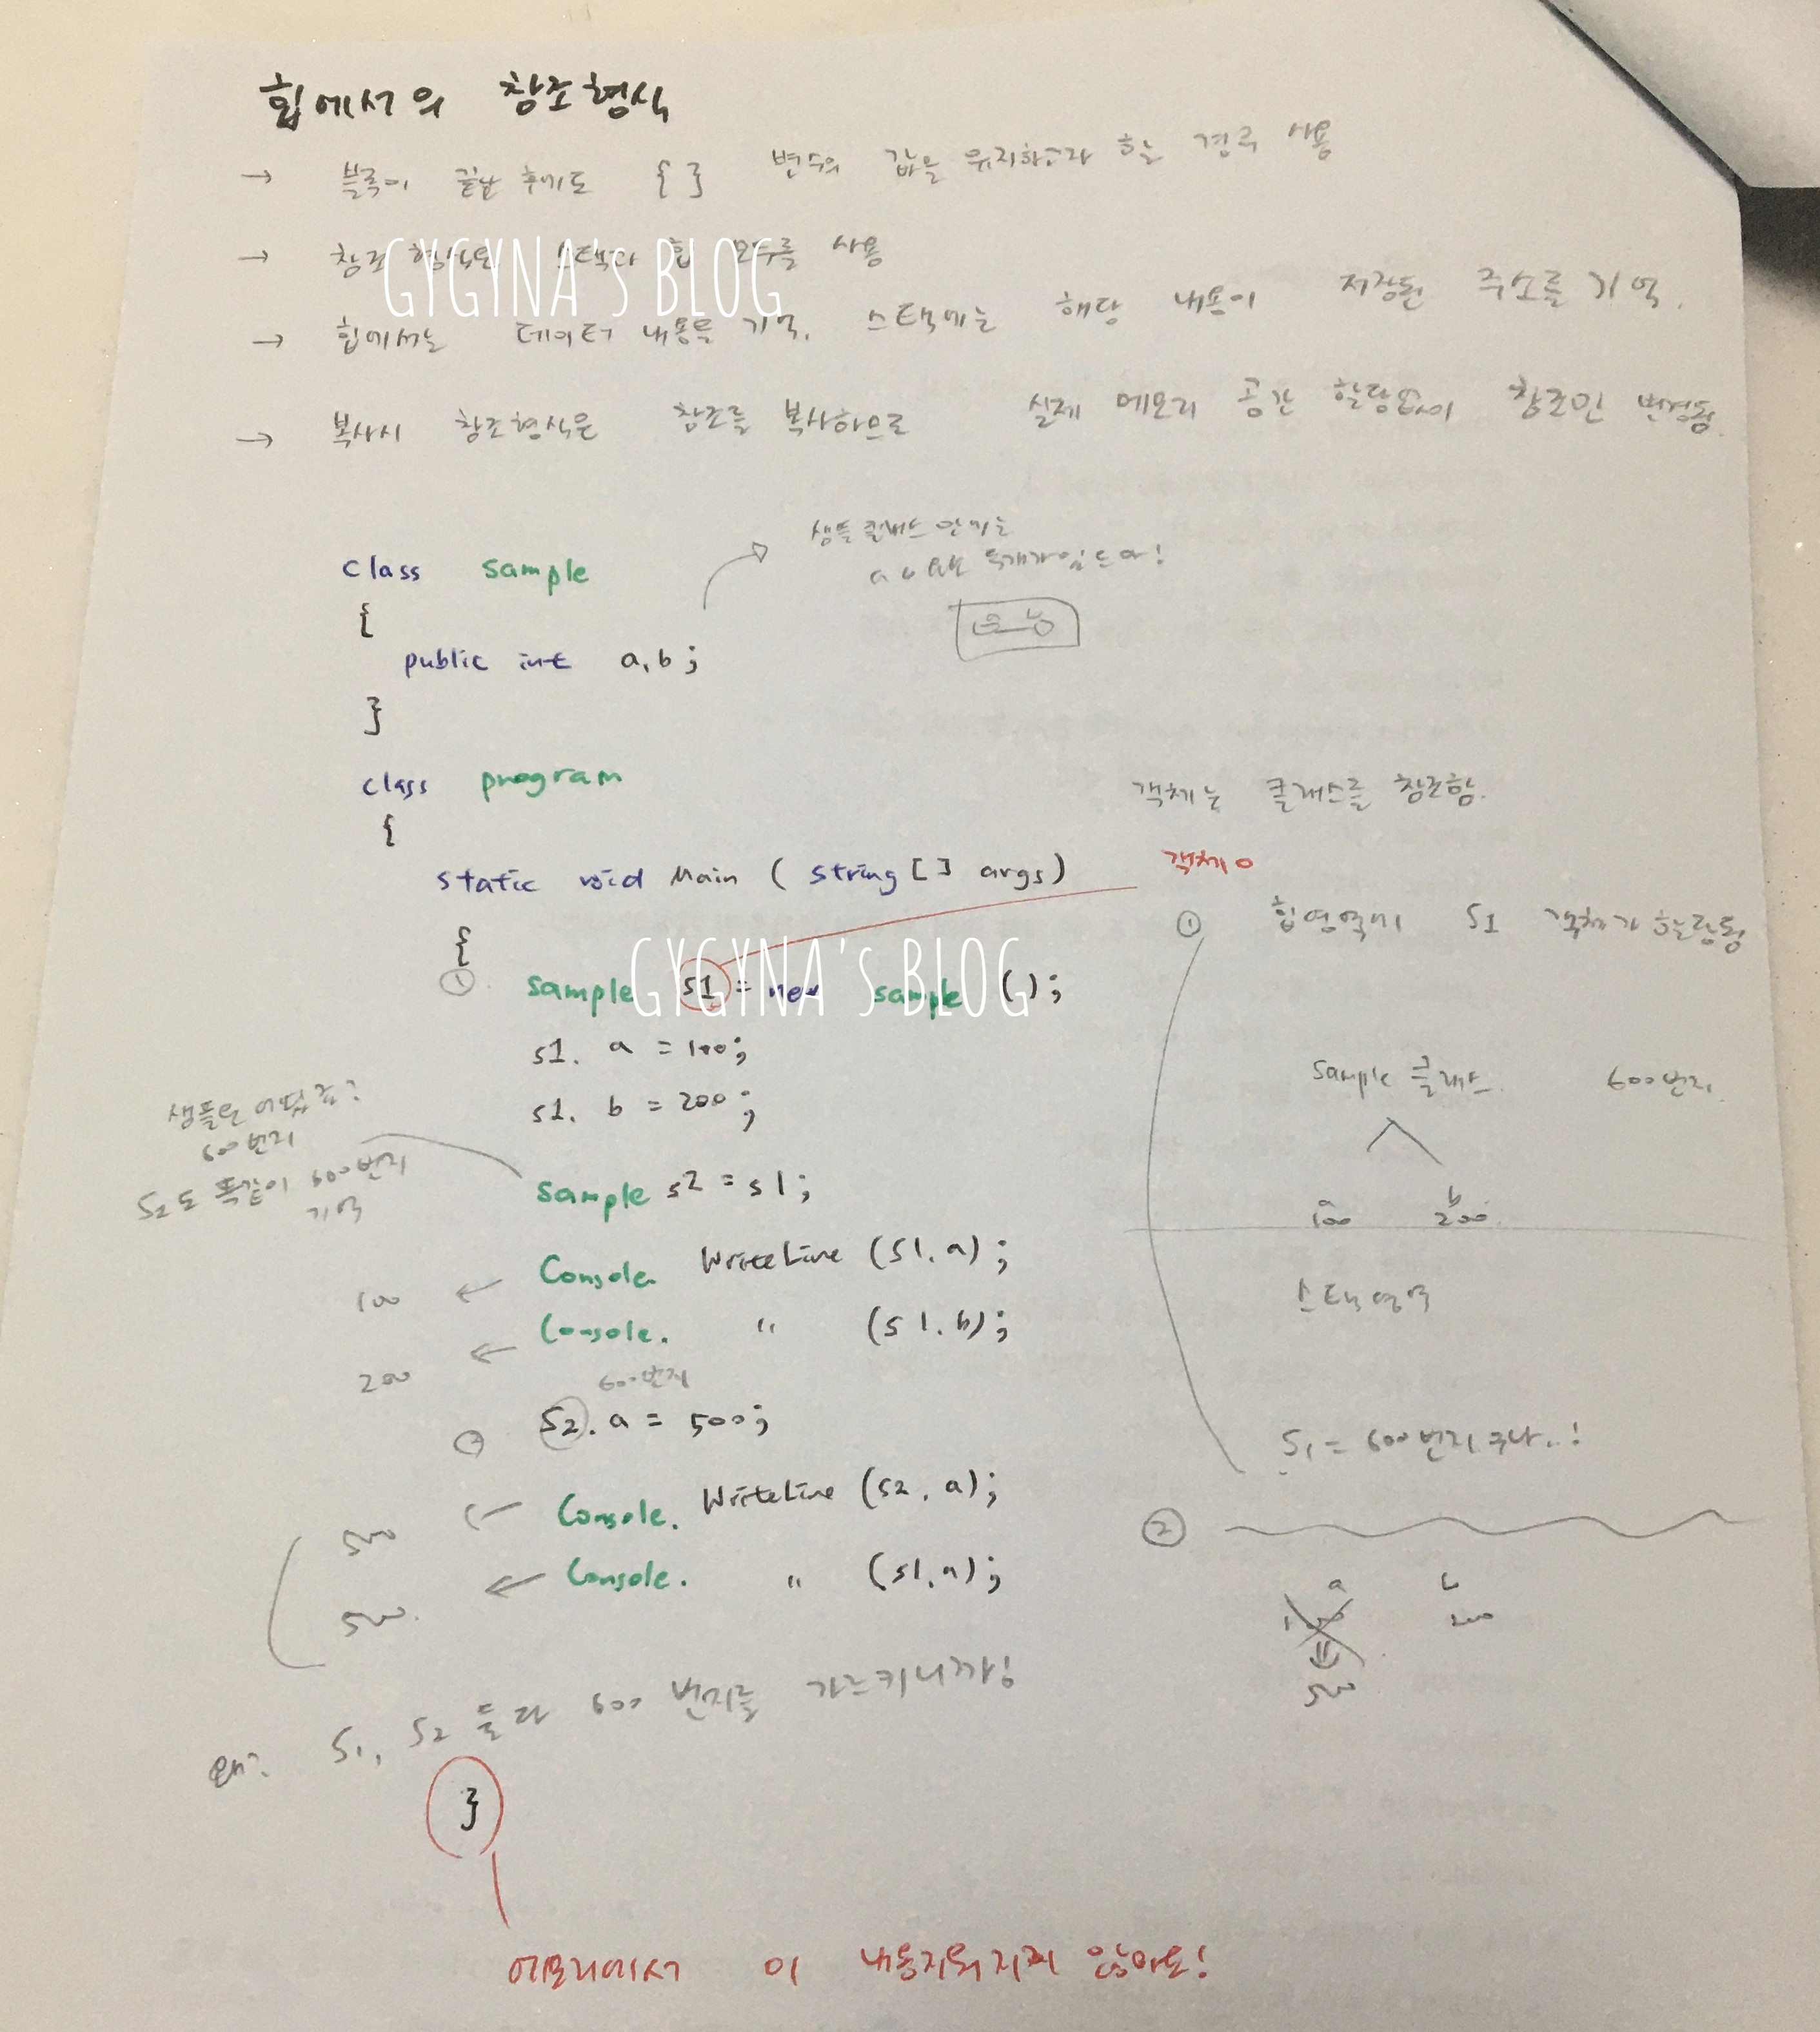 힙에서의 참조형식
→ 블록이 끝난 후에도 { } 변수의 값을 유지하고자 하는 경우 사용
→ 참조 형식은 스택과 힙 모두를 사용
GYGYNA's BLOG
→ 힙에서는 데이터 내용을 기억, 스택에는 해당 내용이 저장된 주소를 기억.
→ 복사시 참조형식은 참조를 복사하므로 실제 메모리 공간 할당없이 참조만 변경됨.
샘플 클래스 안에는
class sample
{
public int a, b;
}
class program
{
객체는 클래스를 참조함.
static void Main ( string [ ] args )
객체 o
{
① 힙영역에 S1 객체가 할당됨
GYGYNA's BLOG
① sample s1 = new sample ( );
s1. a = 100;
s1. b = 200;
sample 클래스 600번지
샘플은 어딨죠?
600번지
S2도 똑같이 600번지
기억
sample s2 = s1;
a b
100 200
Console. WriteLine (s1. a);
100 ←
스택영역
Console. " (s1. b);
200 ←
600번지
S2. a = 500;
S1 = 600번지구나..!
Console. WriteLine (s2. a);
500 ←
②
Console. " (s1. a);
500 ←
a b
100 200
⇓
500
왜? S1, S2 둘다 600 번지를 가르키니까!
}
메모리에서 이 내용지워지지 않아요!